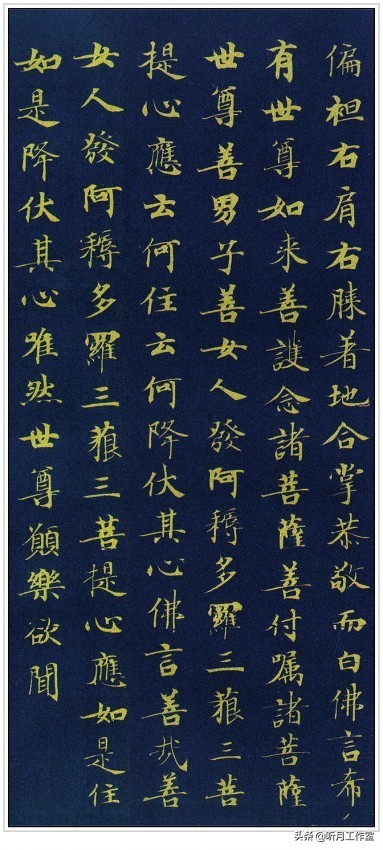 偏袒右肩右膝着地合掌恭敬而白佛言希
有世尊如来善護念諸菩薩善付嘱諸菩薩
世尊善男子善女人發阿耨多羅三藐三菩
提心應云何住云何降伏其心佛言善哉善
女人發阿耨多羅三藐三菩提心應如是住
如是降伏其心唯然世尊願樂欲聞
头条 @听月工作室